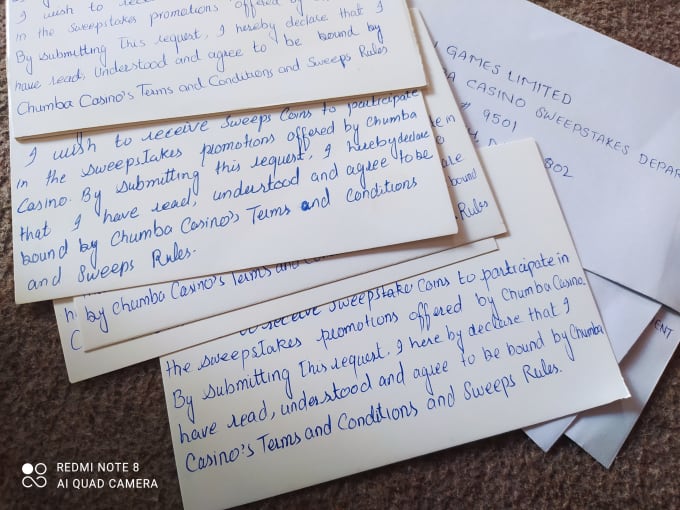 I wish to rece
in the sweepstakes promotions offered by
By submitting This request, I hereby declare that I
have read, understood and agree to be bound by
Chumba Casino's Terms and Conditions and Sweeps Rules
I wish to receive Sweeps Coins to participate
in the sweepstakes promotions offered by Chumba
Casino. By submitting this request, I hereby declare
that I have read, understood and agree to be
bound by Chumba Casino's Terms and Conditions
and Sweeps Rules.
te in
are
bound
Rules
h
by Chumba Casino's Terms and Con
C
to receive sweepstake Coins to participate in
the sweepstakes promotions offered by Chumba Casino.
By submitting This request, I here by declare that I
have read, understood and agree to be bound by Chumba
Casino's Terms and Conditions and Sweeps Rules.
GAMES LIMITED
CASINO SWEEPSTAKES DEPAR
# 9501
802
ENT
REDMI NOTE 8
AI QUAD CAMERA